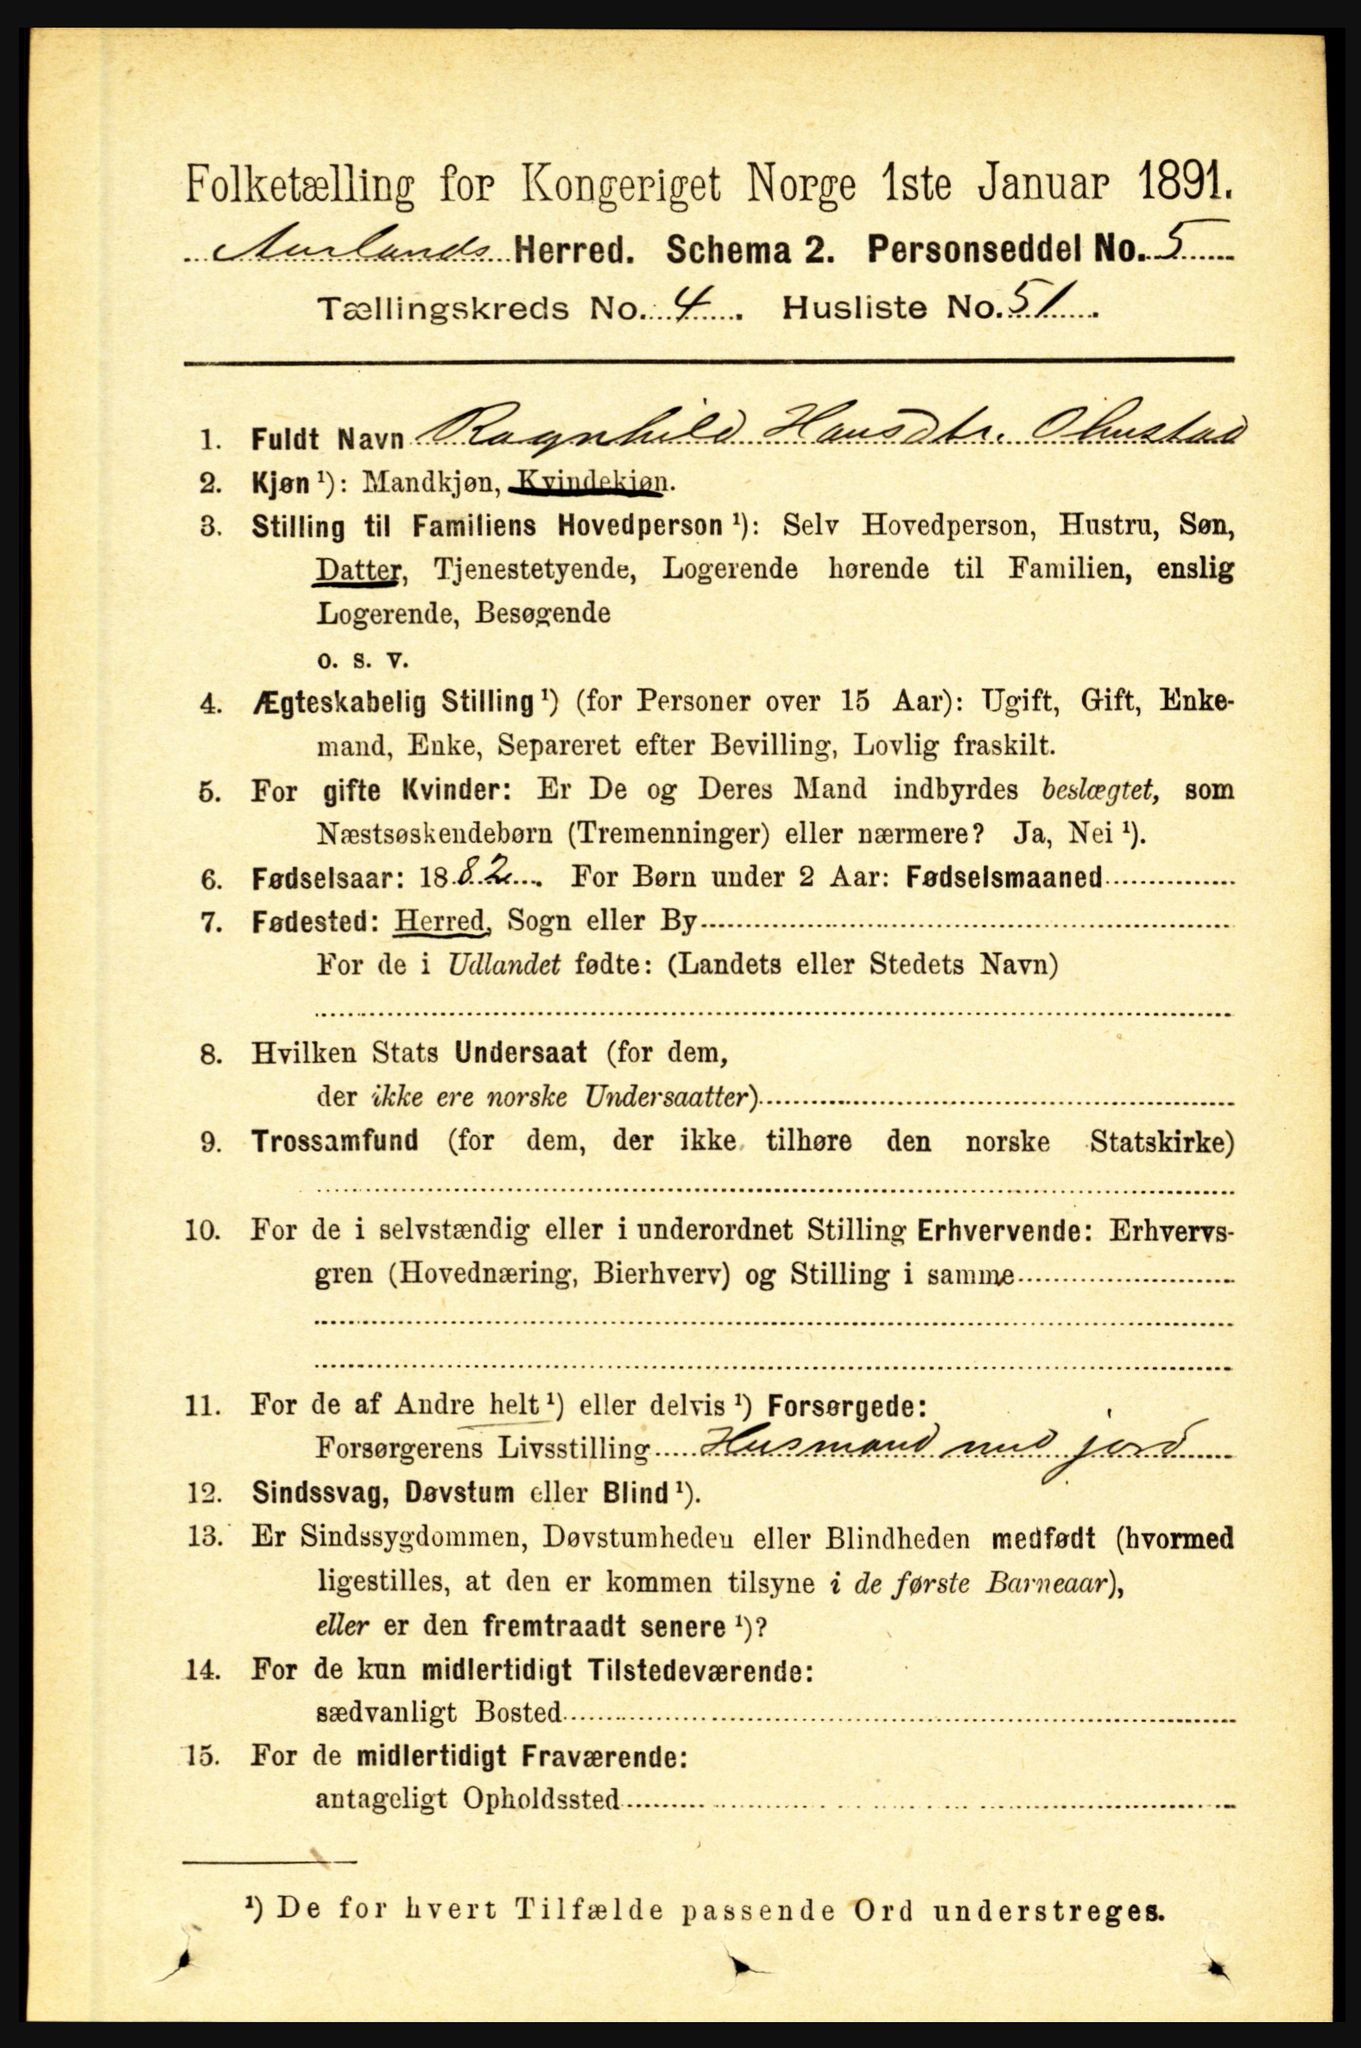 Folketælling for Kongeriget Norge 1ste Januar 1891.
Aurlands Herred. Schema 2. Personseddel No. 5
Tællingskreds No. 4. Husliste No. 51.
1. Fuldt Navn Ragnhild Hansdtr. Ohnstad
2. Kjøn ¹): Mandkjøn, Kvindekjøn.
3. Stilling til Familiens Hovedperson ¹): Selv Hovedperson, Hustru, Søn,
Datter, Tjenestetyende, Logerende hørende til Familien, enslig
Logerende, Besøgende
o. s. v.
4. Ægteskabelig Stilling ¹) (for Personer over 15 Aar): Ugift, Gift, Enke-
mand, Enke, Separeret efter Bevilling, Lovlig fraskilt.
5. For gifte Kvinder: Er De og Deres Mand indbyrdes beslægtet, som
Næstsøskendebørn (Tremenninger) eller nærmere? Ja, Nei ¹).
6. Fødselsaar: 1882. For Børn under 2 Aar: Fødselsmaaned
7. Fødested: Herred, Sogn eller By
For de i Udlandet fødte: (Landets eller Stedets Navn)
8. Hvilken Stats Undersaat (for dem,
der ikke ere norske Undersaatter)
9. Trossamfund (for dem, der ikke tilhøre den norske Statskirke)
10. For de i selvstændig eller i underordnet Stilling Erhvervende: Erhvervs-
gren (Hovednæring, Bierhverv) og Stilling i samme
11. For de af Andre helt ¹) eller delvis ¹) Forsørgede:
Forsørgerens Livsstilling Husmand med jord
12. Sindssvag, Døvstum eller Blind ¹).
13. Er Sindssygdommen, Døvstumheden eller Blindheden medfødt (hvormed
ligestilles, at den er kommen tilsyne i de første Barneaar),
eller er den fremtraadt senere ¹)?
14. For de kun midlertidigt Tilstedeværende:
sædvanligt Bosted
15. For de midlertidigt Fraværende:
antageligt Opholdssted
¹) De for hvert Tilfælde passende Ord understreges.